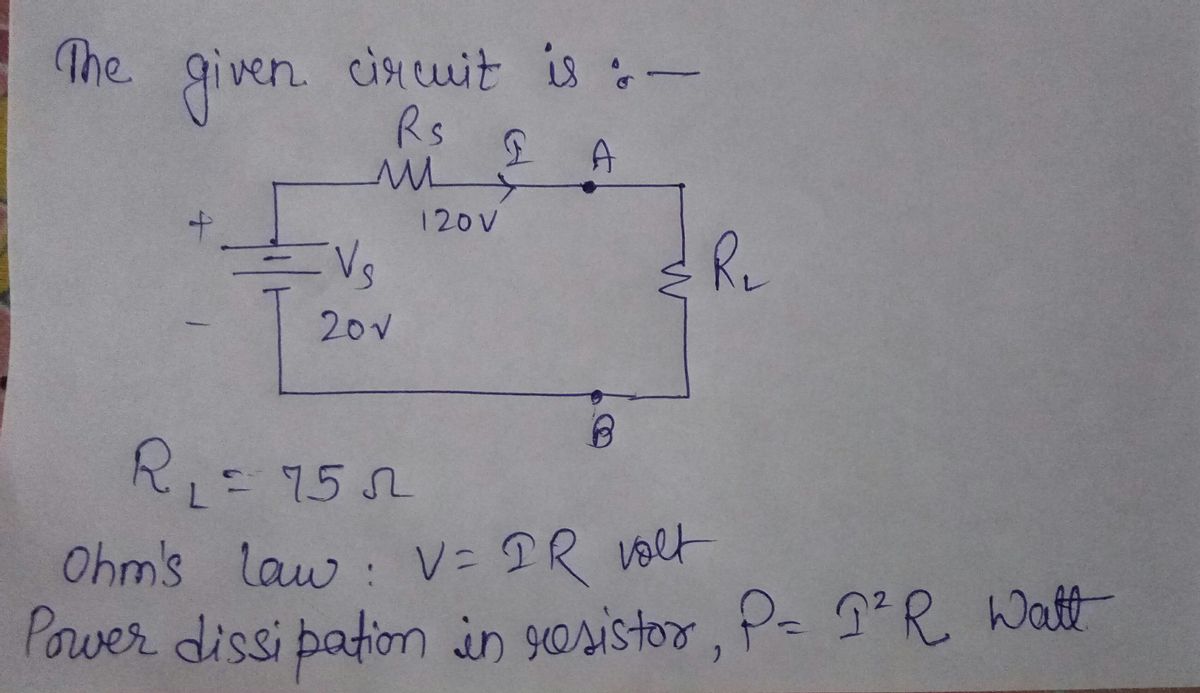 The given circuit is :-
Rs
I
A
+
120V
Vs
RL
-
20V
B
RL = 75 Ω
Ohm's law : V = IR volt
Power dissipation in resistor, P = I²R Watt